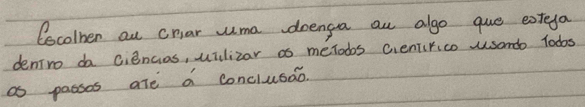 Escolher ou criar uma doença ou algo que esteja
dentro da ciências, utilizar os métodos cientifico usando todos
os passos até á conclusão.